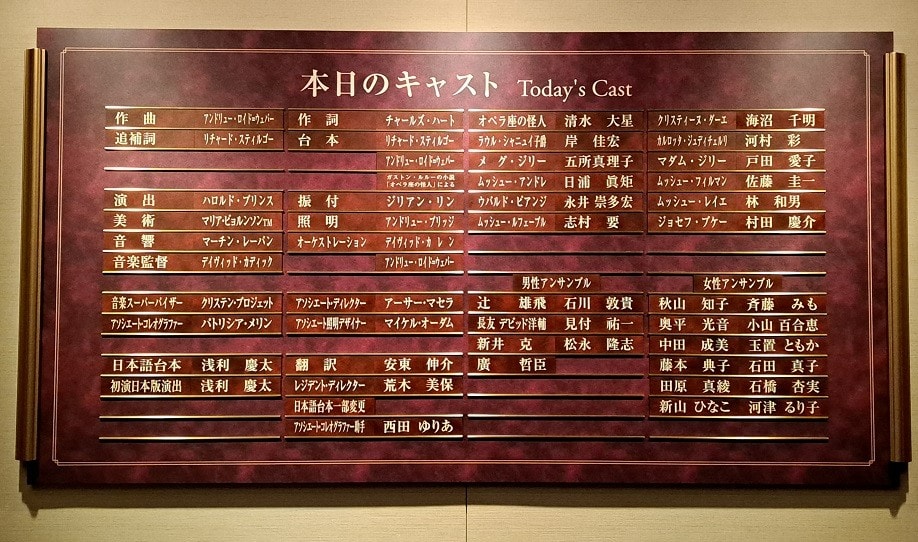 本日のキャスト Today's Cast
作曲 アンドリュー・ロイド=ウェバー
追補詞 リチャード・スティルゴー
演出 ハロルド・プリンス
美術 マリア・ビョルンソン™
音響 マーチン・レーバン
音楽監督 デイヴィッド・カディック
音楽スーパーバイザー クリステン・ブロジェット
アソシエート・コレオグラファー パトリシア・メリン
日本語台本 浅利 慶太
初演日本版演出 浅利 慶太
作詞 チャールズ・ハート
台本 リチャード・スティルゴー
アンドリュー・ロイド=ウェバー
ガストン・ルルーの小説
「オペラ座の怪人」による
振付 ジリアン・リン
照明 アンドリュー・ブリッジ
オーケストレーション デイヴィッド・カレン
アンドリュー・ロイド=ウェバー
アソシエート・ディレクター アーサー・マセラ
アソシエート照明デザイナー マイケル・オーダム
翻訳 安東 伸介
レジデント・ディレクター 荒木 美保
日本語台本一部変更
アソシエート・コレオグラファー助手 西田 ゆりあ
オペラ座の怪人 清水 大星
ラウル・シャニュイ子爵 岸 佳宏
メグ・ジリー 五所真理子
ムッシュー・アンドレ 日浦 眞矩
ウバルド・ピアンジ 永井 崇多宏
ムッシュー・ルフェーブル 志村 要
男性アンサンブル
辻 雄飛 石川 敦貴
長友 デビッド洋輔 見付 祐一
新井 克 松永 隆志
廣 哲臣
クリスティーヌ・ダーエ 海沼 千明
カルロッタ・ジュディチェルリ 河村 彩
マダム・ジリー 戸田 愛子
ムッシュー・フィルマン 佐藤 圭一
ムッシュー・レイエ 林 和男
ジョセフ・ブケー 村田 慶介
女性アンサンブル
秋山 知子 斉藤 みも
奥平 光音 小山 百合恵
中田 成美 玉置 ともか
藤本 典子 石田 真子
田原 真綾 石橋 杏実
新山 ひなこ 河津 るり子